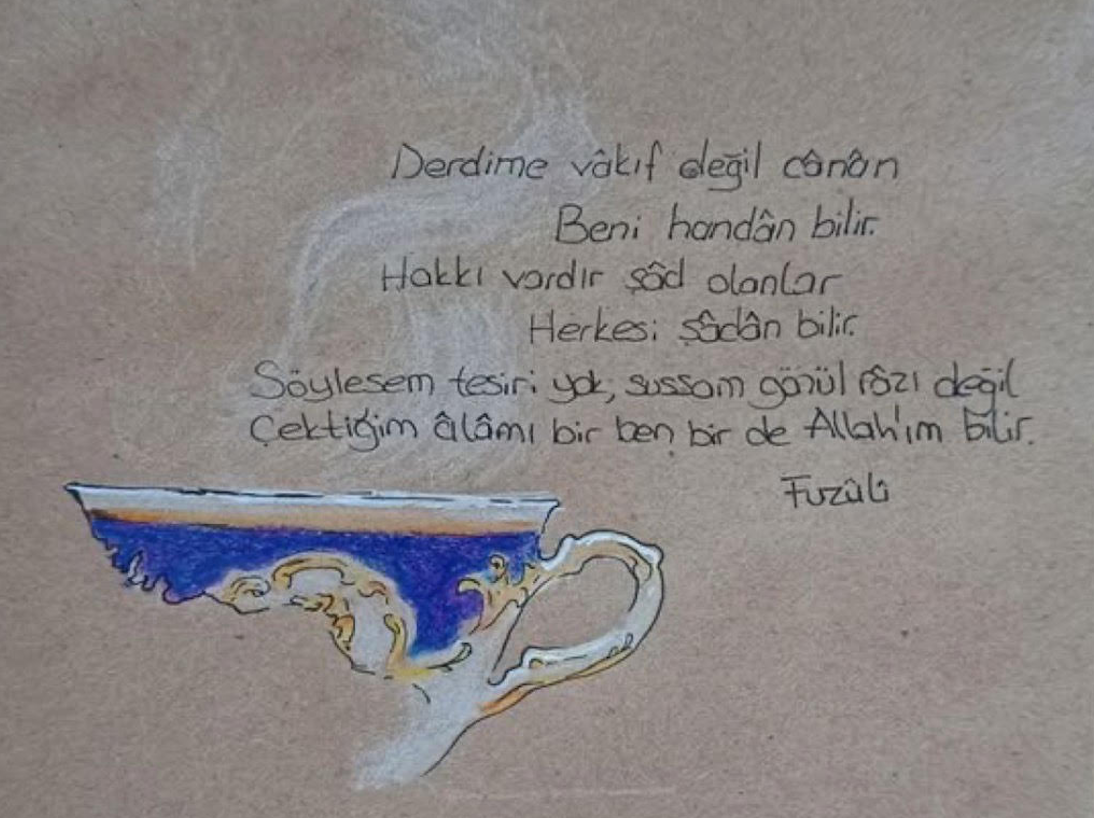 Derdime vâkıf değil cânân
Beni handân bilir.
Hakkı vardır şâd olanlar
Herkesi şâdân bilir.
Söylesem tesiri yok, sussam gönül râzı değil
Çektiğim âlâmı bir ben bir de Allah'ım bilir.
Fuzûlî